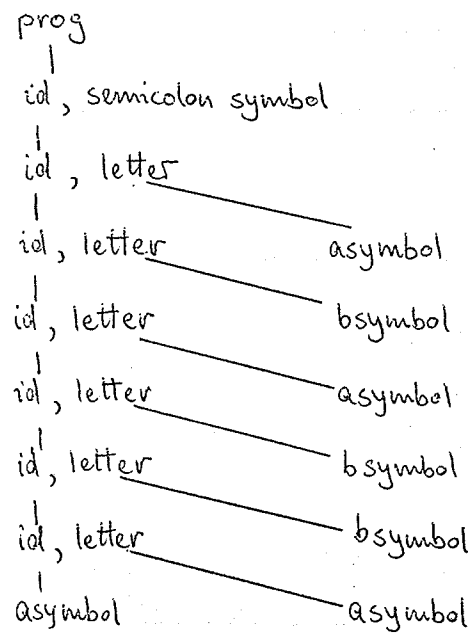 prog
id, semicolon symbol
id, letter
asymbol
id, letter
bsymbol
id, letter
asymbol
id, letter
bsymbol
id, letter
bsymbol
id, letter
asymbol asymbol